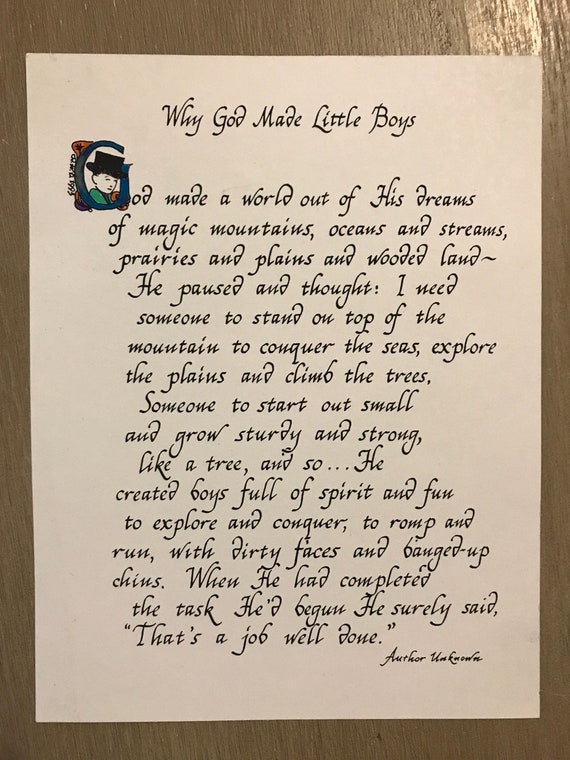 Why God Made Little Boys
God made a world out of His dreams
of magic mountains, oceans and streams,
prairies and plains and wooded land~
He paused and thought: I need
someone to stand on top of the
mountain to conquer the seas, explore
the plains and climb the trees,
Someone to start out small
and grow sturdy and strong,
like a tree, and so... He
created boys full of spirit and fun
to explore and conquer, to romp and
run, with dirty faces and banged-up
chins. When He had completed
the task He'd begun He surely said,
"That's a job well done."
Author Unknown